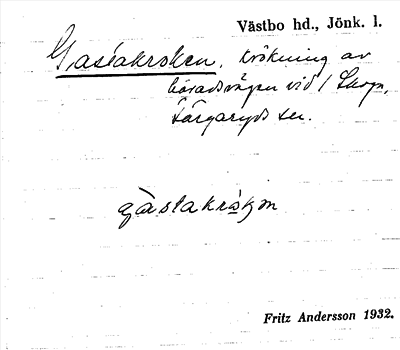 Västbo hd., Jönk. l.
Gastakroken, krökning av
häradsvägen vid / Skogn,
Färgaryds sn.
gàstakrå̱kₔn
Fritz Andersson 1932.